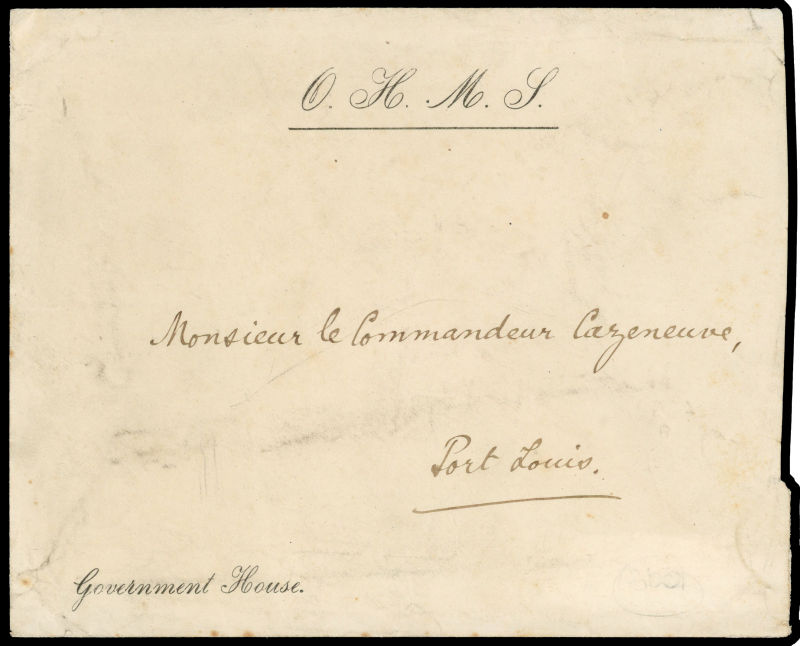 O. H. M. S.
Monsieur le Commandeur Cazeneuve,
Port Louis.
Government House.